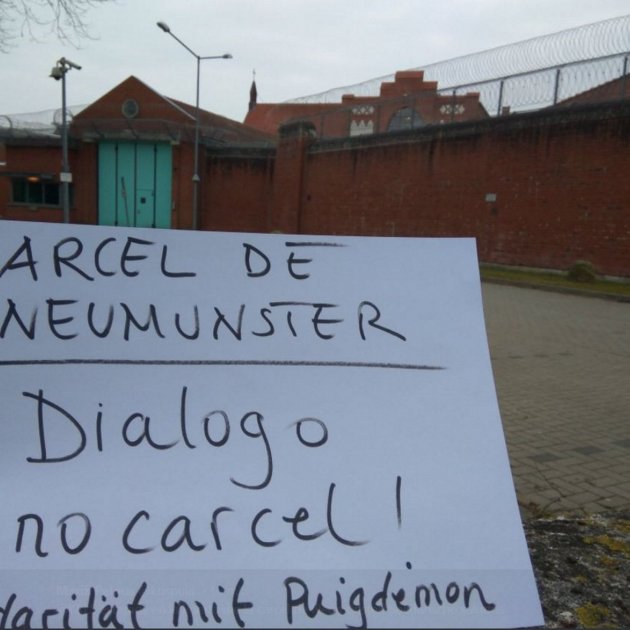 ARCEL DE
NEUMUNSTER
Dialogo
no carcel!
darität mit Puigdemon